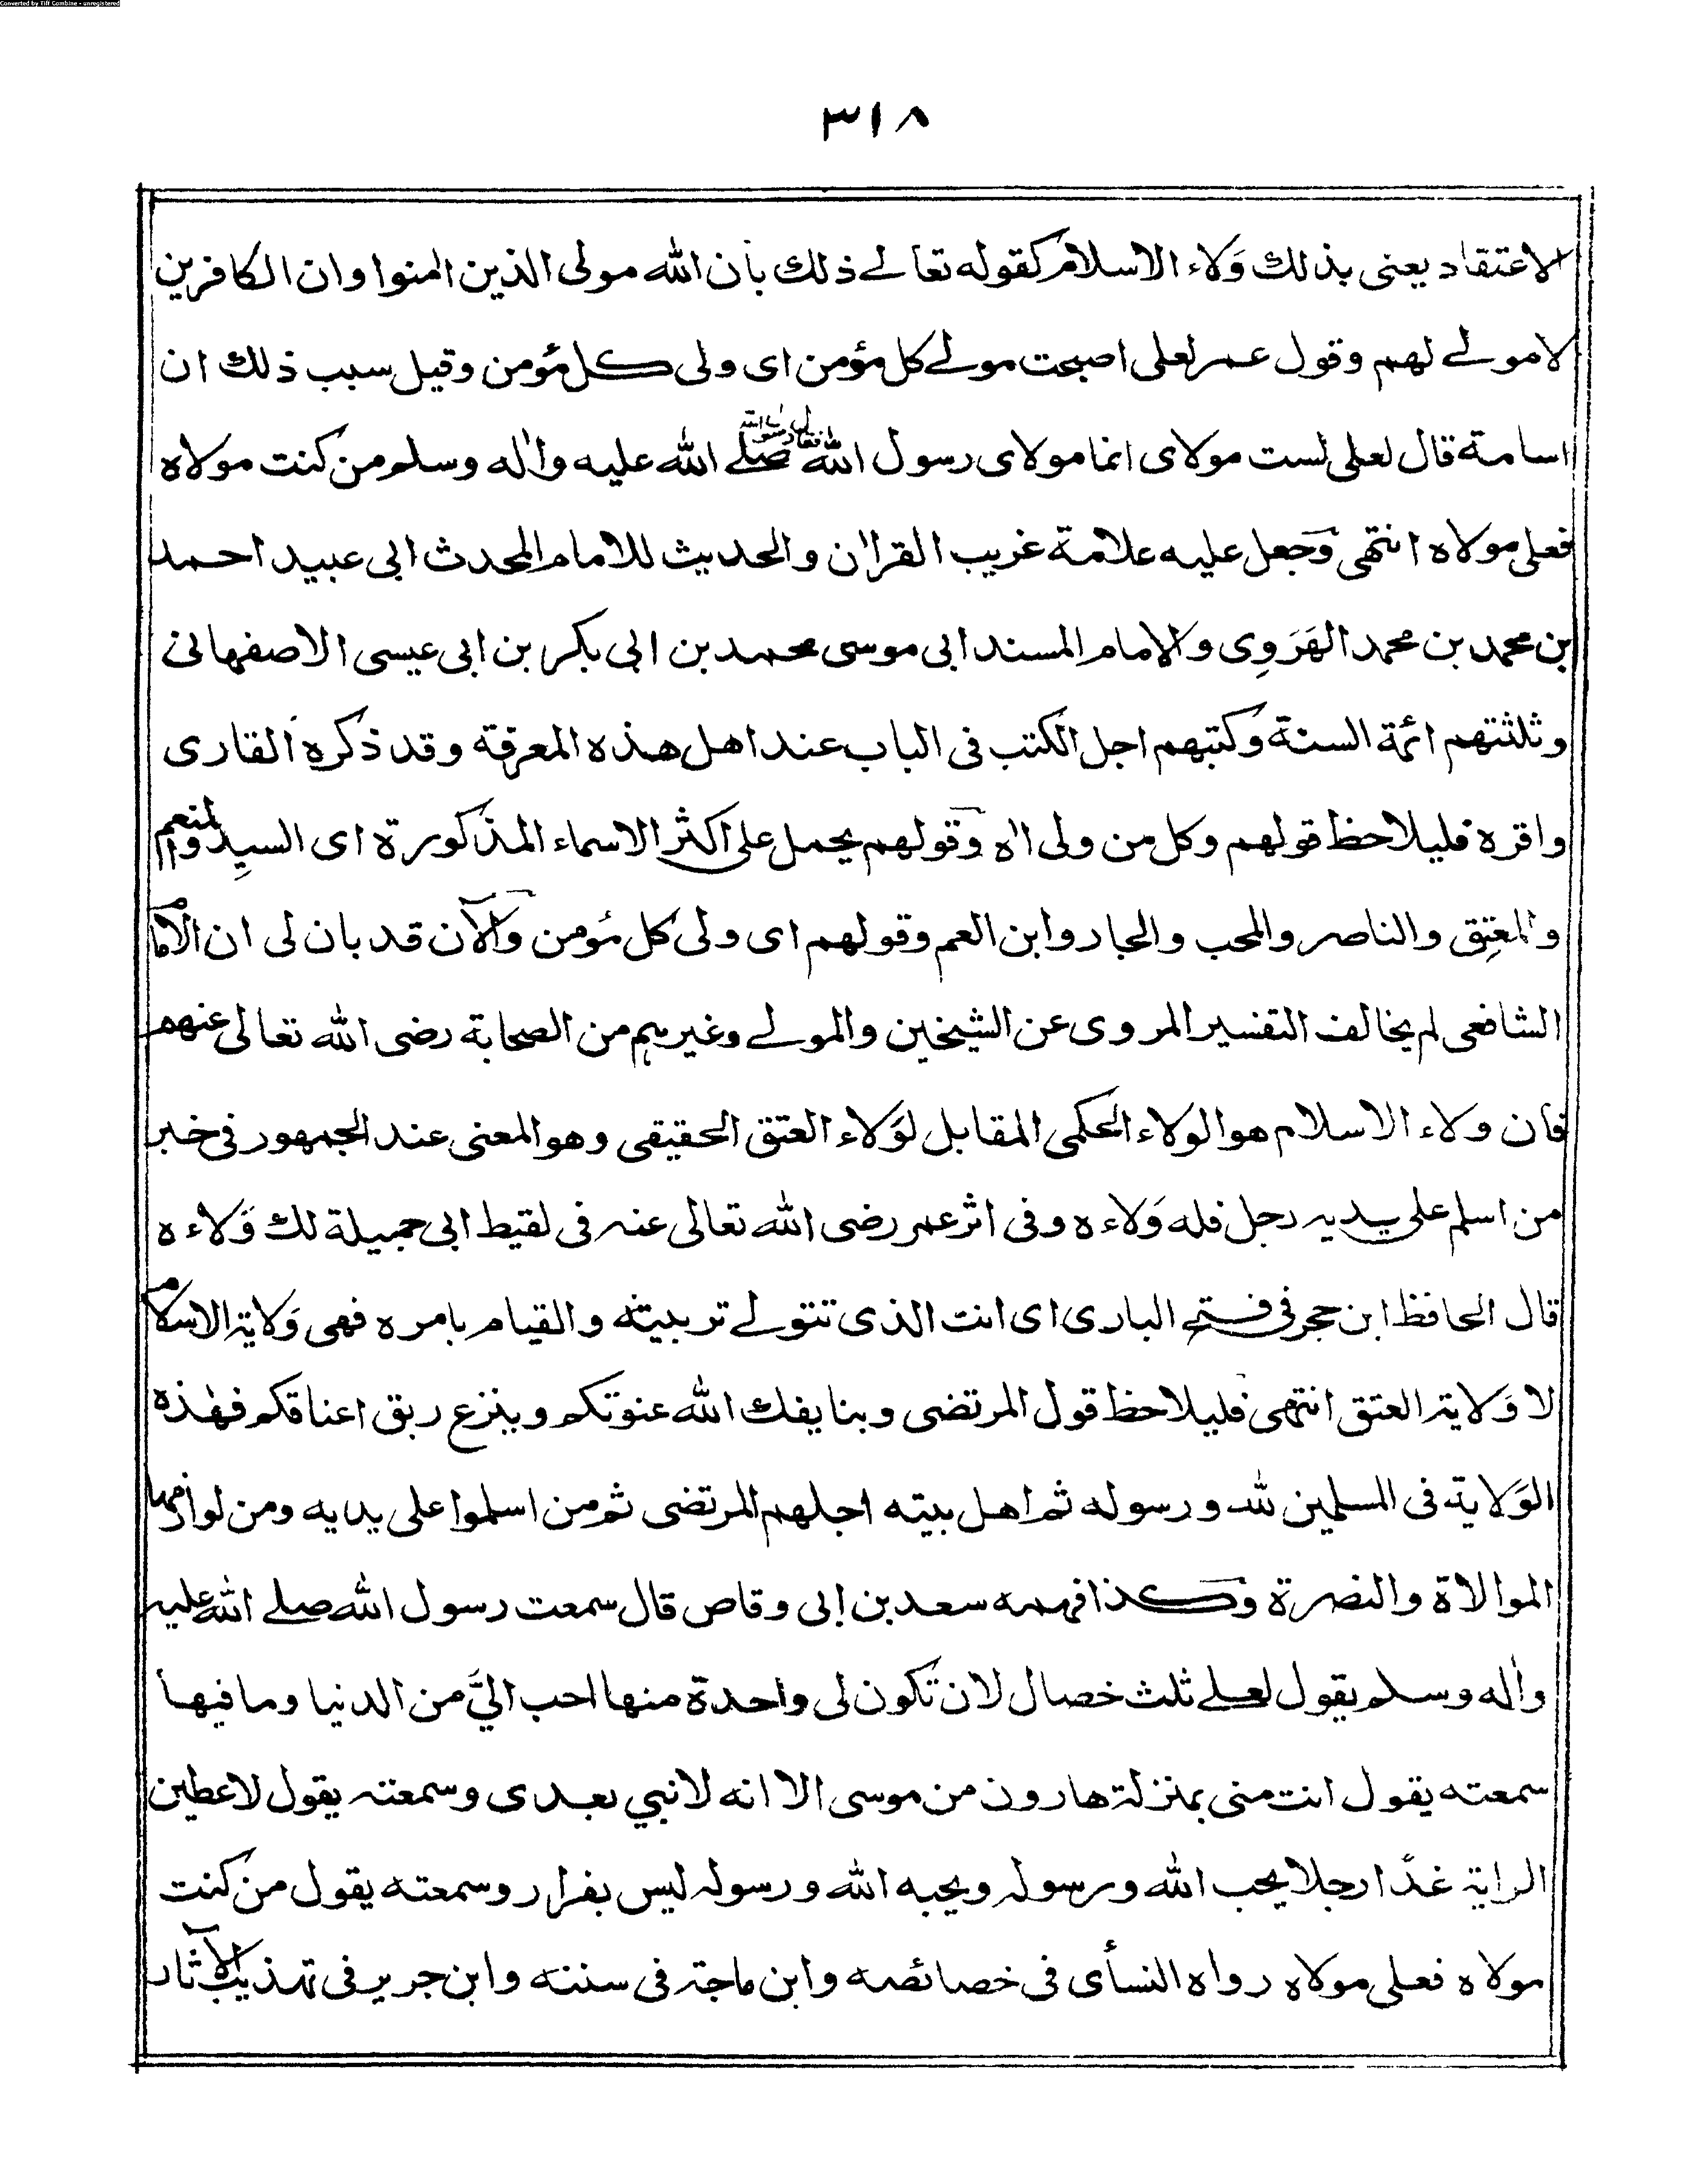 Converted by Tiff Combine - unregistered
٣١٨
الاعتقاد يعنى بذلك وَلاء الاسلام كقوله تعالے ذلك بأن الله مولى الذين اٰمنوا وان الكافرين
لا مولے لهم وقول عمر لعلى اصبحت مولے كل مؤمن اى ولى كل مؤمن وقيل سبب ذلك ان
اسامة قال لعلى لست مولاى انما مولاى رسول الله فقال رسول الله صلے الله عليه واٰله وسلم من كنت مولاه
فعلى مولاه انتهى وجعل عليه علامة غريب القراٰن والحديث للامام المحدث ابى عبيد احمد
بن محمد بن محمد الهَرَوِى والامام المسند ابى موسى محمد بن ابى بكر بن ابى عيسى الاصفهانى
وثلثتهم ائمة السنة وكتبهم اجل الكتب فى الباب عند اهل هذه المعرفة وقد ذكره القارى
واقره فليلاحظ قولهم وكل من ولى اٰه وقولهم يحمل على اكثر الاسماء المذكورة اى السيِد والمنعم
والمعتِق والناصر والمحب والجار وابن العم وقولهم اى ولى كل مؤمن والآن قد بان لى ان الامام
الشافعى لم يخالف التفسير المروى عن الشيخين والمولے وغيرهم من الصحابة رضى الله تعالى عنهم
فان ولاء الاسلام هو الولاء الحكمى المقابل لوَلاء العتق الحقيقى وهو المعنى عند الجمهور فى خبر
من اسلم على يديه رجل فله وَلاءه وفى اثر عمر رضى الله تعالى عنه فى لقيط ابى جميلة لك وَلاءه
قال الحافظ ابن حجر فى فتح البارى اى انت الذى تتولے تربيته والقيام بامره فهى وَلاية الاسلام
لا وَلاية العتق انتهى فليلاحظ قول المرتضى وبنا يفك الله عنوتكم وينزع ربق اعناقكم فهٰذه
الوَلاية فى المسلمين لله ورسوله ثم اهل بيته اجلهم المرتضى ثم من اسلموا على يديه ومن لوازمها
الموالاة والنصرة وكذا فهمه سعد بن ابى وقاص قال سمعت رسول الله صلے الله عليه
واٰله وسلم يقول لعلے ثلث خصال لان تكون لى واحدة منها احب اليَّ من الدنيا وما فيها
سمعته يقول انت منى بمنزلة هارون من موسى الا انه لا نبي بعدى وسمعته يقول لاعطين
الراية غدًا رجلا يحب الله ورسوله ويحبه الله ورسوله ليس بفرار وسمعته يقول من كنت
مولاه فعلى مولاه رواه النسأى فى خصائصه وابن ماجة فى سننه وابن جرير فى تهذيب الآثار